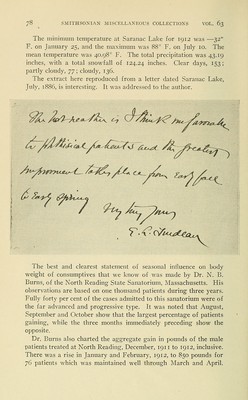 78 SMITHSONIAN MISCELLANEOUS COLLECTIONS VOL. 63
The minimum temperature at Saranac Lake for 1912 was —32°
F. on January 25, and the maximum was 88° F. on July 10. The
mean temperature was 40.98° F. The total precipitation was 43.19
inches, with a total snowfall of 124.24 inches. Clear days, 153;
partly cloudy, 77; cloudy, 136.
The extract here reproduced from a letter dated Saranac Lake,
July, 1886, is interesting. It was addressed to the author.
The hot weather is I think unfavorable
to phthisical patients and the greatest
improvement takes place from early fall
to early spring
Very truly yours
E. L. Trudeau
The best and clearest statement of seasonal influence on body
weight of consumptives that we know of was made by Dr. N. B.
Burns, of the North Reading State Sanatorium, Massachusetts. His
observations are based on one thousand patients during three years.
Fully forty per cent of the cases admitted to this sanatorium were of
the far advanced and progressive type. It was noted that August,
September and October show that the largest percentage of patients
gaining, while the three months immediately preceding show the
opposite.
Dr. Burns also charted the aggregate gain in pounds of the male
patients treated at North Reading, December, 1911 to 1912, inclusive.
There was a rise in January and February, 1912, to 850 pounds for
76 patients which was maintained well through March and April.